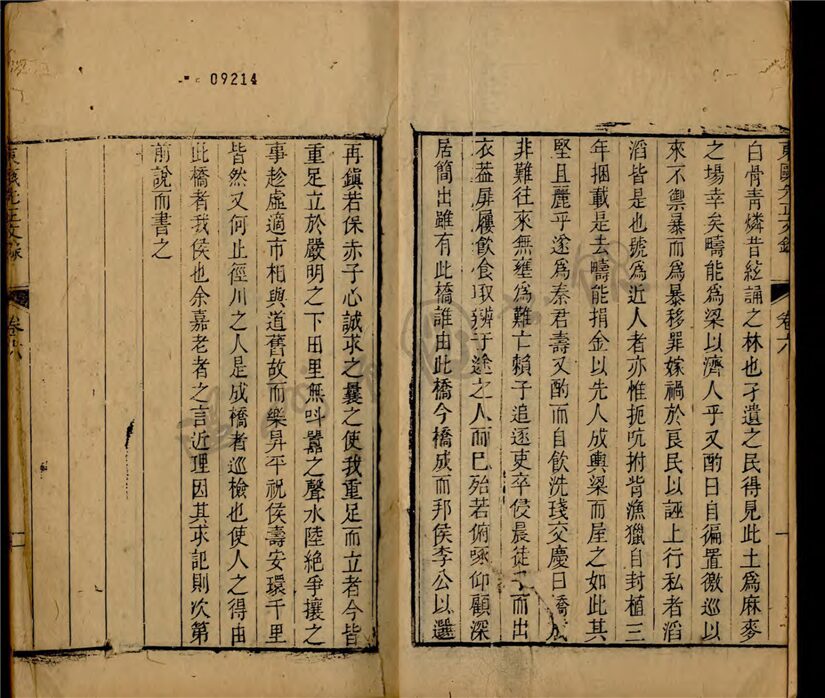 09214
東甌先正文錄 卷六
白骨青燐昔絃誦之林也孑遺之民得見此土爲麻麥
之場幸矣疇能爲梁以濟人乎又酌曰自徧置徼巡以
來不禦暴而爲暴移罪嫁禍於良民以誣上行私者滔
滔皆是也號爲近人者亦惟扼吭拊背漁獵自封植三
年捆載是去疇能捐金以先人成輿梁而屋之如此其
堅且麗乎遂爲秦君壽又酌而自飲洗琖交慶曰橋成
非難往來無壅爲難亡賴子追逐吏卒侵晨徒而出
衣葢屏屨飲食取辨于途之人而巳殆若俯啄仰顧深
居簡出雖有此橋誰由此橋今橋成而邦侯李公以選
再鎭若保赤子心誠求之曩之使我重足而立者今皆
重足立於嚴明之下田里無呌嚻之聲水陸絕爭攘之
事趁虛適市相與道舊故而樂昇平祝侯壽安環千里
皆然又何止徑川之人是成橋者巡檢也使人之得由
此橋者我侯也余嘉老者之言近理因其求記則次第
前說而書之
東甌先正文錄 卷六 二